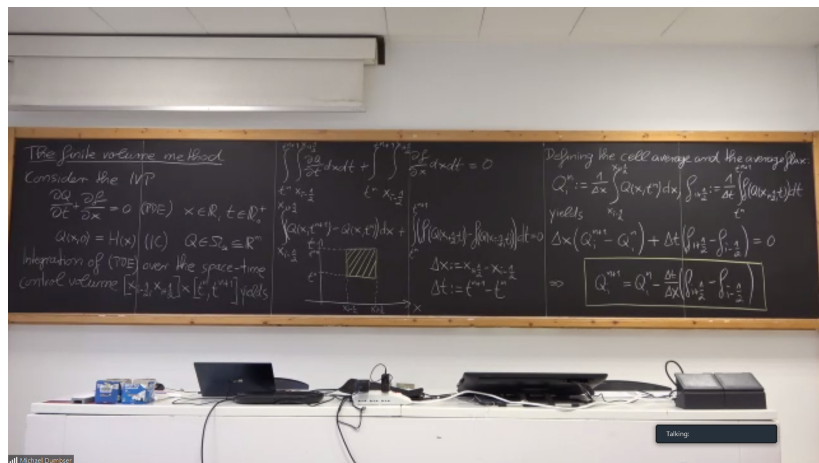 The finite volume method
Consider the IVP
∂Q/∂t + ∂f/∂x = 0 (PDE) x ∈ ℝ, t ∈ ℝ₀⁺
Q(x,0) = H(x) (IC) Q ∈ Ω_Q ⊆ ℝᵐ
Integration of (PDE) over the space-time
control volume [x_{i-1/2}, x_{i+1/2}] × [tⁿ, tⁿ⁺¹] yields
∫_{tⁿ}^{tⁿ⁺¹} ∫_{x_{i-1/2}}^{x_{i+1/2}} ∂Q/∂t dxdt + ∫_{tⁿ}^{tⁿ⁺¹} ∫_{x_{i-1/2}}^{x_{i+1/2}} ∂f/∂x dxdt = 0
∫_{x_{i-1/2}}^{x_{i+1/2}} (Q(x,tⁿ⁺¹) - Q(x,tⁿ)) dx + ∫_{tⁿ}^{tⁿ⁺¹} (f(Q(x_{i+1/2},t)) - f(Q(x_{i-1/2},t))) dt = 0
t
tⁿ⁺¹
tⁿ
x_{i-1/2} x_{i+1/2} x
Δx := x_{i+1/2} - x_{i-1/2}
Δt := tⁿ⁺¹ - tⁿ
Defining the cell average and the average flux:
Q_iⁿ := 1/Δx ∫_{x_{i-1/2}}^{x_{i+1/2}} Q(x,tⁿ) dx, f_{i+1/2} := 1/Δt ∫_{tⁿ}^{tⁿ⁺¹} f(Q(x_{i+1/2},t)) dt
yields
Δx (Q_iⁿ⁺¹ - Q_iⁿ) + Δt (f_{i+1/2} - f_{i-1/2}) = 0
⇒ Q_iⁿ⁺¹ = Q_iⁿ - Δt/Δx (f_{i+1/2} - f_{i-1/2})
Talking:
Michael Dumbser